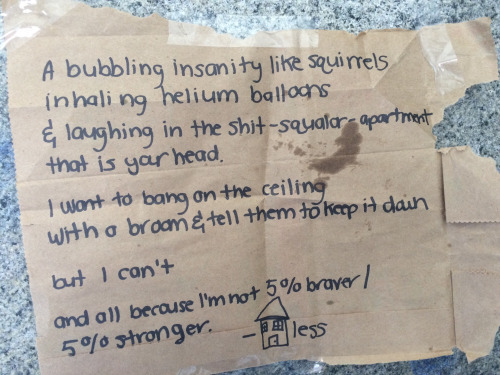 A bubbling insanity like squirrels
inhaling helium balloons
& laughing in the shit-squalor-apartment
that is your head.
I want to bang on the ceiling
with a broom & tell them to keep it down
but I can't
and all because I'm not 5% braver/
5% stronger.
- less